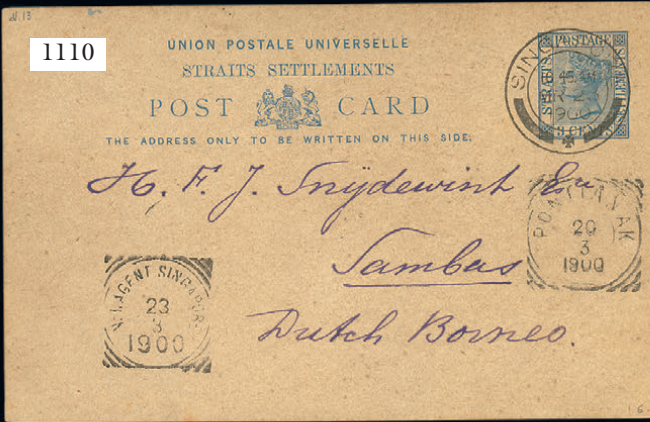 1110
UNION POSTALE UNIVERSELLE
STRAITS SETTLEMENTS
POST CARD
THE ADDRESS ONLY TO BE WRITTEN ON THIS SIDE.
POSTAGE
STRAITS
3 CENTS
H. F. J. Snydewint Esq
Sambas
Dutch Borneo.
PONTIANAK
20
3
1900
N.I. AGENT SINGAPORE
23
3
1900